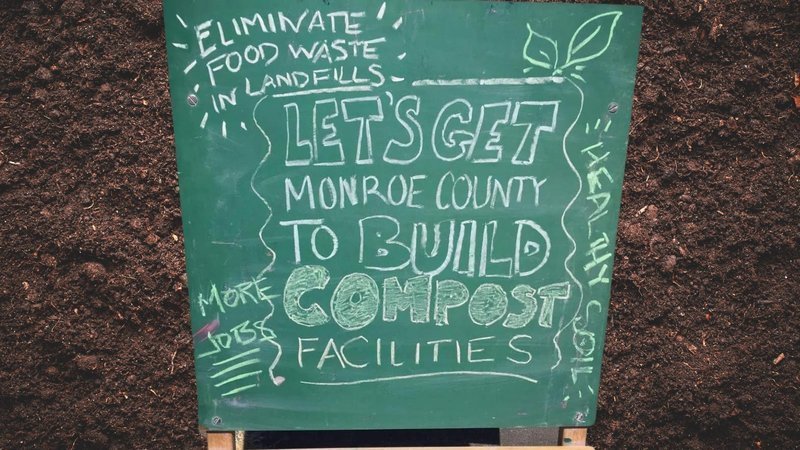 ELIMINATE
FOOD WASTE
IN LANDFILLS
LET'S GET
MONROE COUNTY
TO BUILD
COMPOST
FACILITIES
MORE
JOBS
HEALTHY SOIL